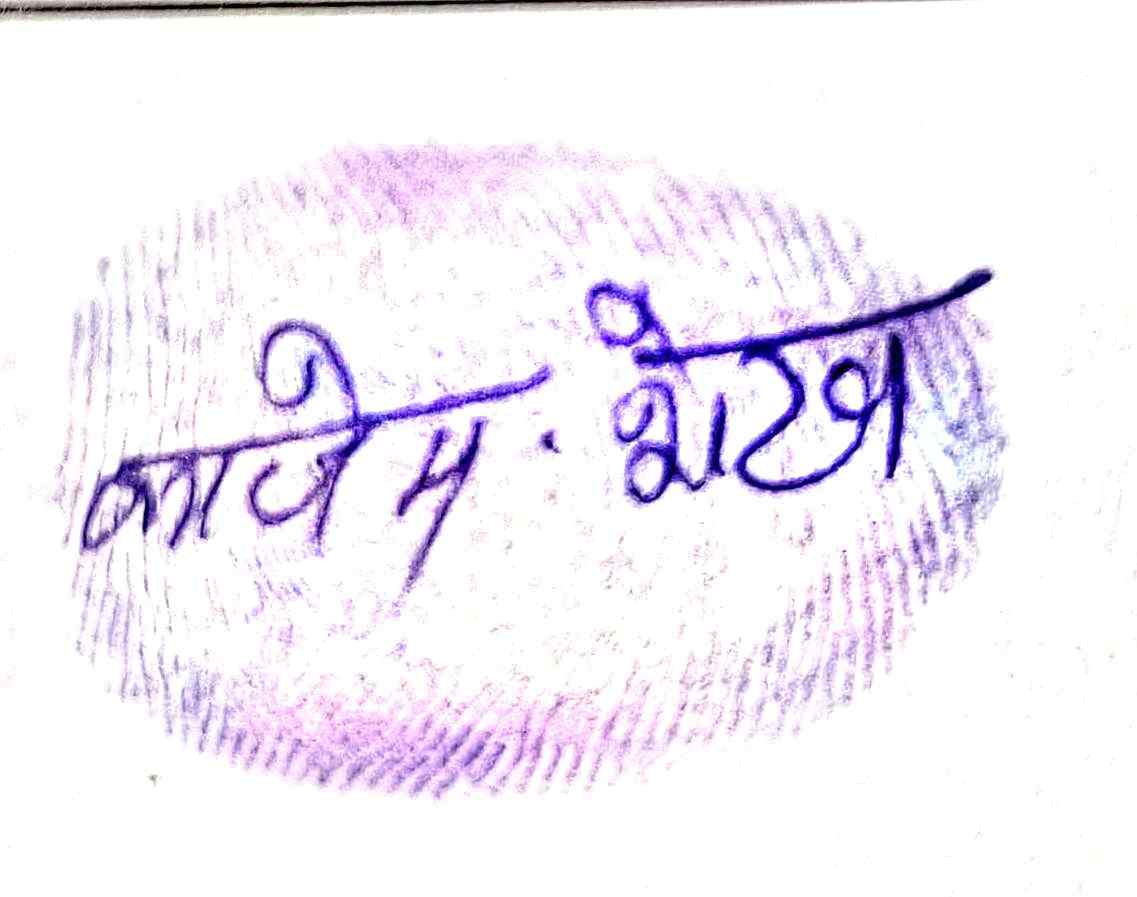 काजेम. शेख